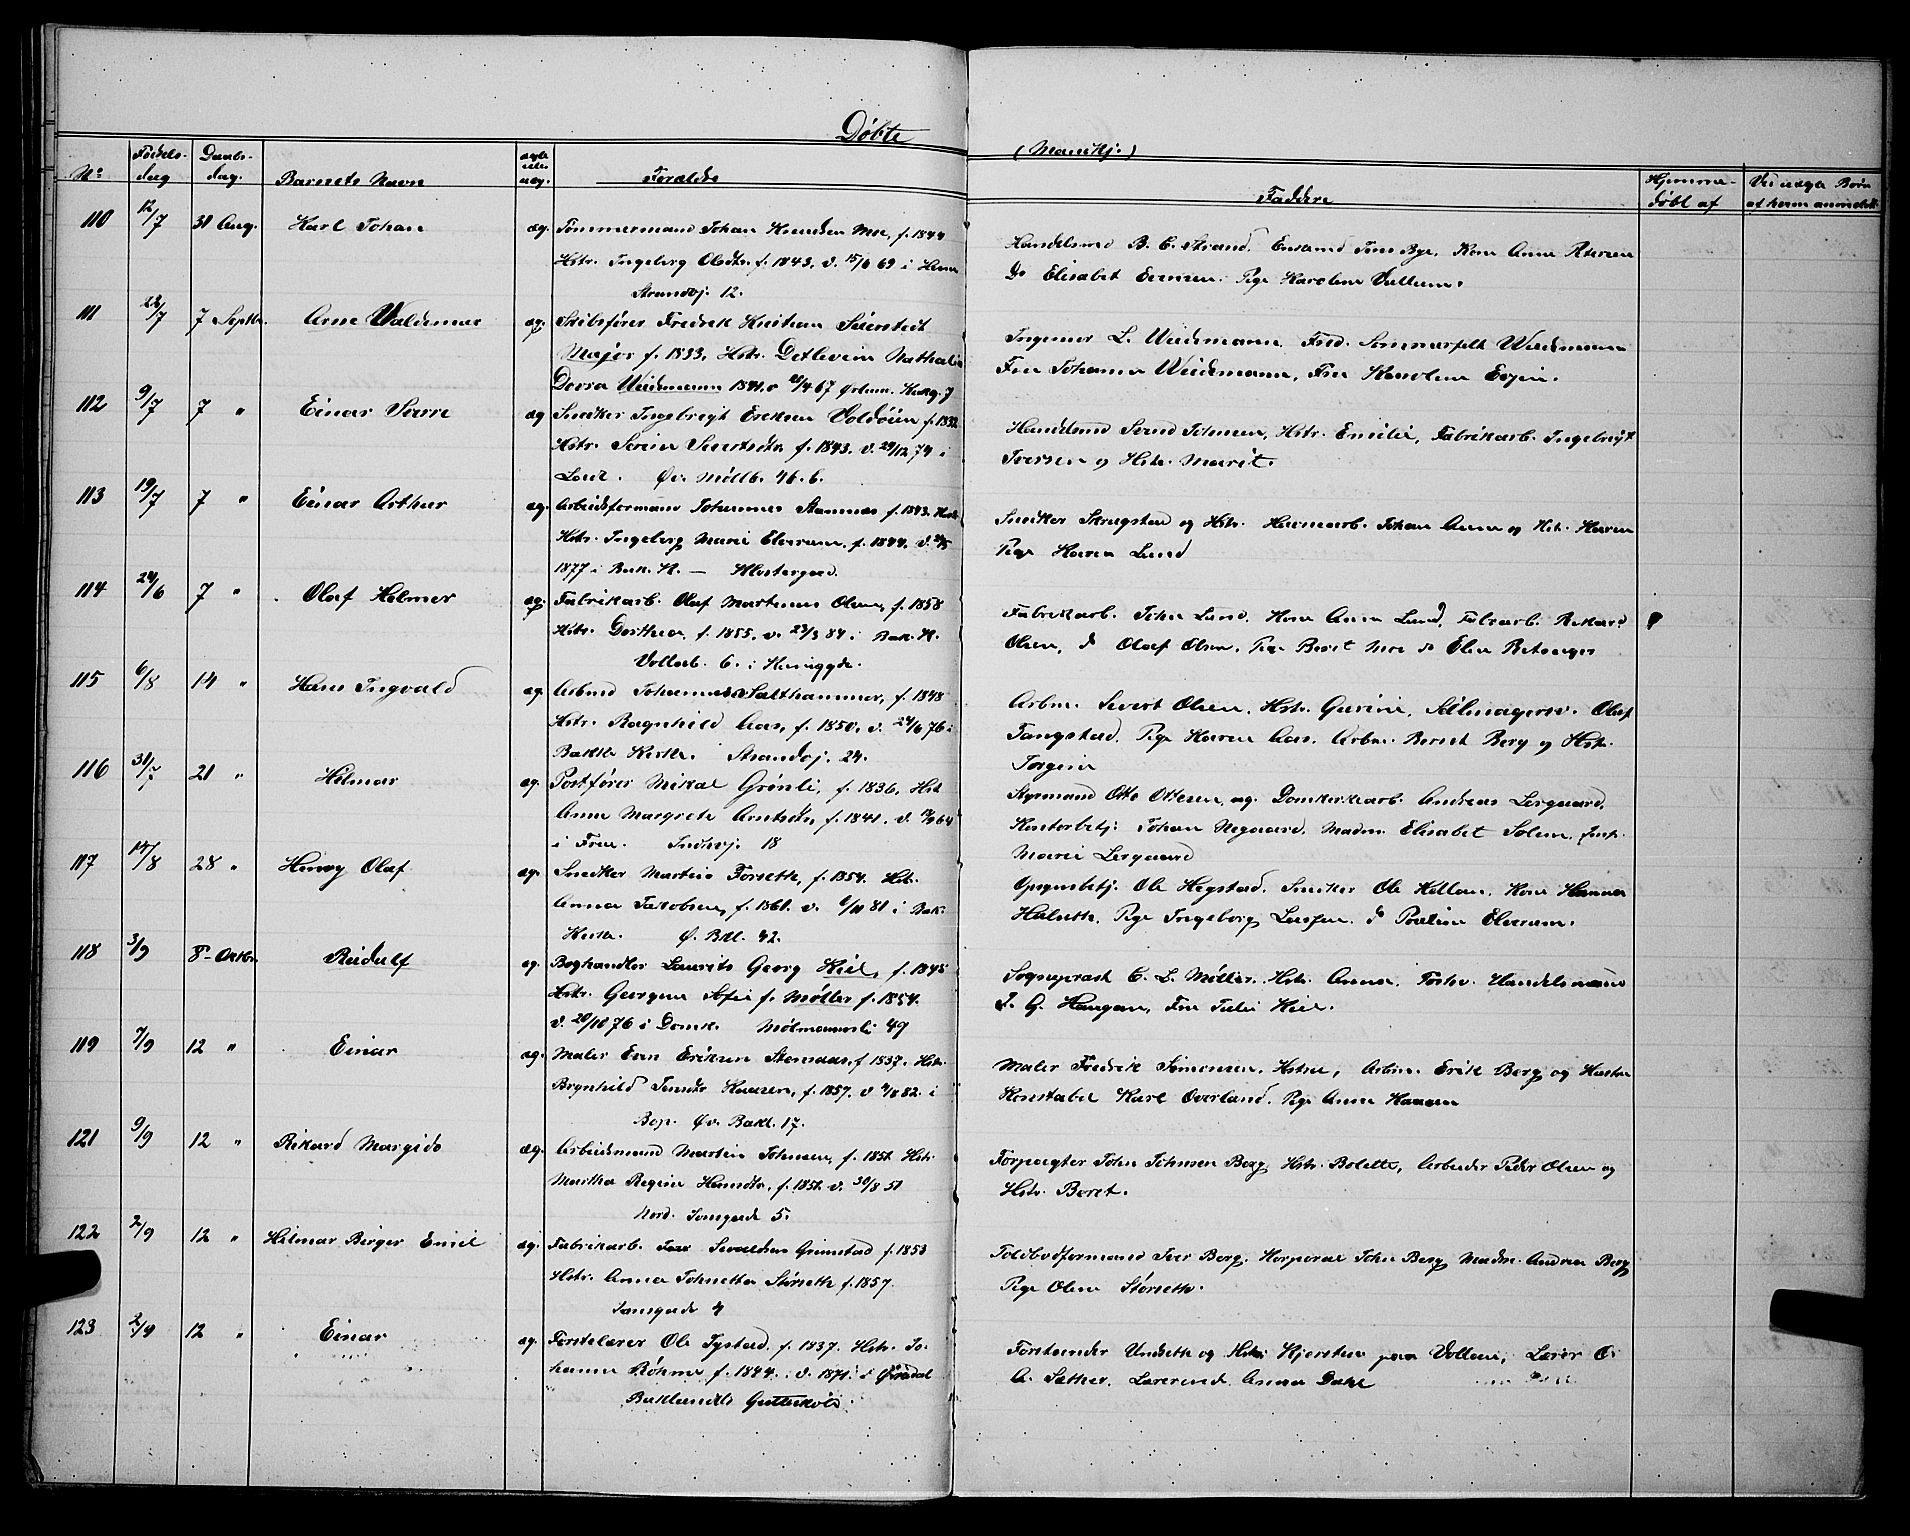 Døbte
(Mandkj.)
No Fødsels-dag Daabs-dag. Barnets Navn ægte eller uæg. Forældre Faddere Hjemme-døbt af Ved uægte Børn af hvem anmeldt
110 12/7 31 Aug. Karl Johan æg. Tømmermand Johan Knudsen Moe, f. 1844
Hstr. Ingeborg Olsdtr. f. 1843. v. 15/6 69 i
Strandvj. 12.
Handelsmd B. C. Strand, Enkemd Jens Bye, Kone Anne Petersen
do Elisabet Evensen. Pige Karoline
111 22/7 7 Septbr. Arne Valdemar æg. Skibsfører Fredrik Kristian Seierstedt
Major f. 1833, Hstr. Detlevin Nathalia
Dorra Weidemann 1841. v 4/67 Kirkeg. 7
Ingeniør L. Weidemann, Fred. Sommerfelt Weidemann
Frue Johanna Weidemann, Frue Karoline
112 9/7 7 " Einar Sverre æg Snedker Ingebregt Eriksen Voldøien f. 1832
Hstr. Serine Sivertsdtr. f. 1843. v. 29/12 74 i
Lade. Øv. Møllb. 46. b.
Handelsmd Svend Johnsen, Hstr. Emilie, Fabrikarb. Ingebrigt
Iversen og Hstr. Marit.
113 19/7 7 " Einar Arthur æg. Arbeidsformand Johannes Stamnæs f. 1843.
Hstr. Ingeborg Marie Elverum, f. 1844. v.
1877 i Bak. K. — Klostergad.
Snedker Skrugstad og Hstr. Havnearb. Johan Aune og Hst. Karen
Pige Karen Lund
114 24/6 7 " Olaf Helmer æg Fabrikarb. Olaf Martinus Olsen, f. 1858
Hstr. Dorthea, f. 1855. v. 23/3 84 i Bak. K.
Vollab. 6. i
Fabrikarb. John Lund, Kone Anna Lund, Fabrarb. Rikard
Olsen, do Olaf Olsen, Pige Beret Moe do Elen
115 6/8 14 " Hans Ingvald æg. Arbmd Johannes Salthammer, f. 1848
Hstr. Ragnhild Aas, f. 1850. v. 24/6 76 i
Bakke Kirke. Strandvj. 24.
Arbm. Sivert Olsen, Hstr. Gurine, Olaf
Tangstad, Pige Karen Aas. Arbm. Bernt Berg og Hstr.
Jørgine
116 31/7 21 " Hilmar æg. Postfører Mikal Grønli, f. 1836, Hst
Anne Margrete Arntsdtr, f. 1841. v. 64
i Indhvj. 18
Styrmand Otto Ottesen, og Domkirkearb. Andreas Lergaard,
Kontorbetj. Johan Megaard, Madm. Elisabet Solem,
Marie Lergaard
117 14/8 28 " Henry Olaf æg. Snedker Martin Forseth, f. 1854. Hst.
Anna Jakobsen, f. 1861. v. 6/11 81 i Bak.
Kirke. Ø. Bkl. 42.
Opsynsbetj. Ole Hegstad. Snedker Ole Kollan, Kone Hanna
Pige Ingeborg do Pauline Elverum.
118 3/9 8 Oktbr. Rudulf æg Boghandler Laurits Georg Kiel, f. 1845
Hstr. Georgine Sofie f. Møller f. 1854.
v. 20/10 76 i Domk. Møllmannsli 49
Sogneprest C. L. Møller, Hstr. Anna, Handelsmann
J. G. Haugan, Frue Julie Kiel.
119 7/9 12 " Einar æg. Maler Even Eriksen Stensaas, f 1837. Hstr.
Brynhild f. 1857. v 82. i
Bop. Øv. Bakl. 17.
Maler Fredrik Simonsen, Hstru, Arbm. Erik Berg og Hustru
Konstabel Karl Overland. Pige Anna
121 9/9 12 " Rikard Margido æg. Arbeidsmand Martin Johnsen, f. 1851 Hstr.
Martha Regine f. 1851 v. 30/8 51
Nord. Tomgade 5.
Forpagter John Johnsen Berg, Hstr. Bolette, Arbeider Peder Olsen og
Hstr. Beret.
122 2/9 12 " Hilmar Birger Emil æg. Fabrikarb. Iver Sivaldsen Grimstad f. 1853
Hstr. Anna Johnetta Størseth f. 1857.
Tomgade 4
Toldbodformand Iver Berg, Korporal John Berg, Madm. Andrea Berg
Pige Oline Størseth.
123 2/9 12 " Einar æg. Førstelærer Ole Tystad, f. 1837. Hstr. Jo-
hanne Bøhme f. 1844. v. 1871 i
Baklandets Gutteskole.
Forstander Undseth og Hstr. Kjersten paa Vollan, Lærer O.
A. Sæther, Lærerinde Anna Dahl